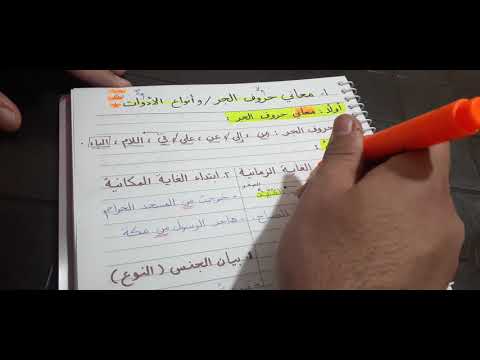 ١. معاني حروف الجر / وأنواع الأدوات
أولاً : معاني حروف الجر :
حروف الجر : من ، إلى ، عن ، على ، في ، اللام ، الباء .
الغاية الزمانية
٢. ابتداء الغاية المكانية
. خرجت من المسجد الحرام
. هاجر الرسول من مكة
بيان الجنس ( النوع )